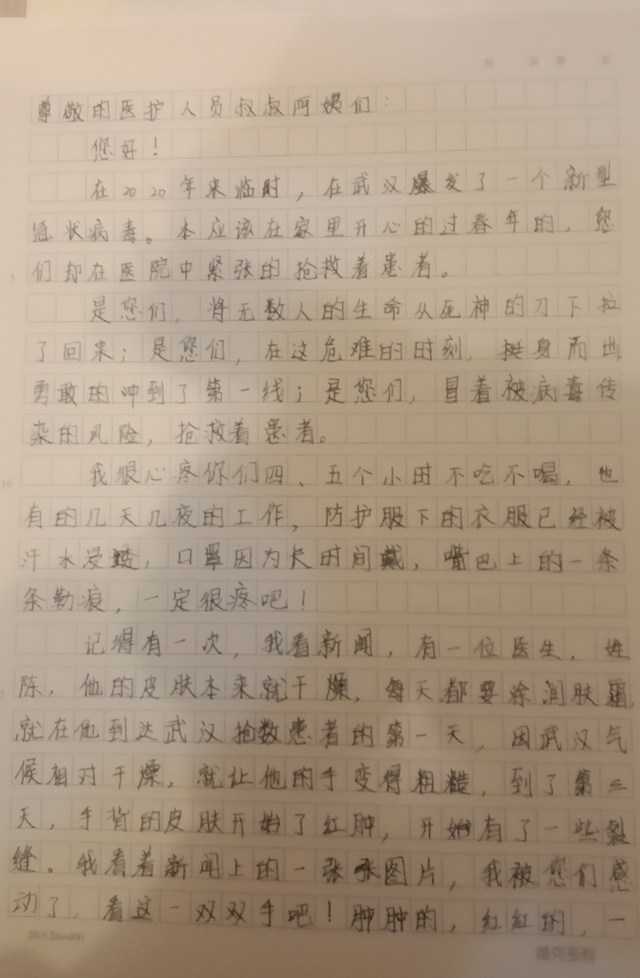 尊敬的医护人员叔叔阿姨们：
您好！
在2020年来临时，在武汉爆发了一个新型
冠状病毒。本应该在家里开心的过春年的，您
们却在医院中紧张的抢救着患者。
是您们，将无数人的生命从死神的刀下拉
了回来；是您们，在这危难的时刻，挺身而出
勇敢的冲到了第一线；是您们，冒着被病毒传
染的风险，抢救着患者。
我很心疼你们四、五个小时不吃不喝，也
有的几天几夜的工作，防护服下的衣服已经被
汗水浸透，口罩因为长时间戴，嘴巴上的一条
条勒痕，一定很疼吧！
记得有一次，我看新闻，有一位医生，姓
陈，他的皮肤本来就干燥，每天都要涂润肤霜，
就在他到达武汉抢救患者的第一天，因武汉气
候相对干燥，就让他的手变得粗糙，到了第三
天，手背的皮肤开始了红肿，开始有了一些裂
缝。我看着新闻上的一张张图片，我被您们感
动了，看这一双双手吧！肿肿的，红红的，一
20×20=400